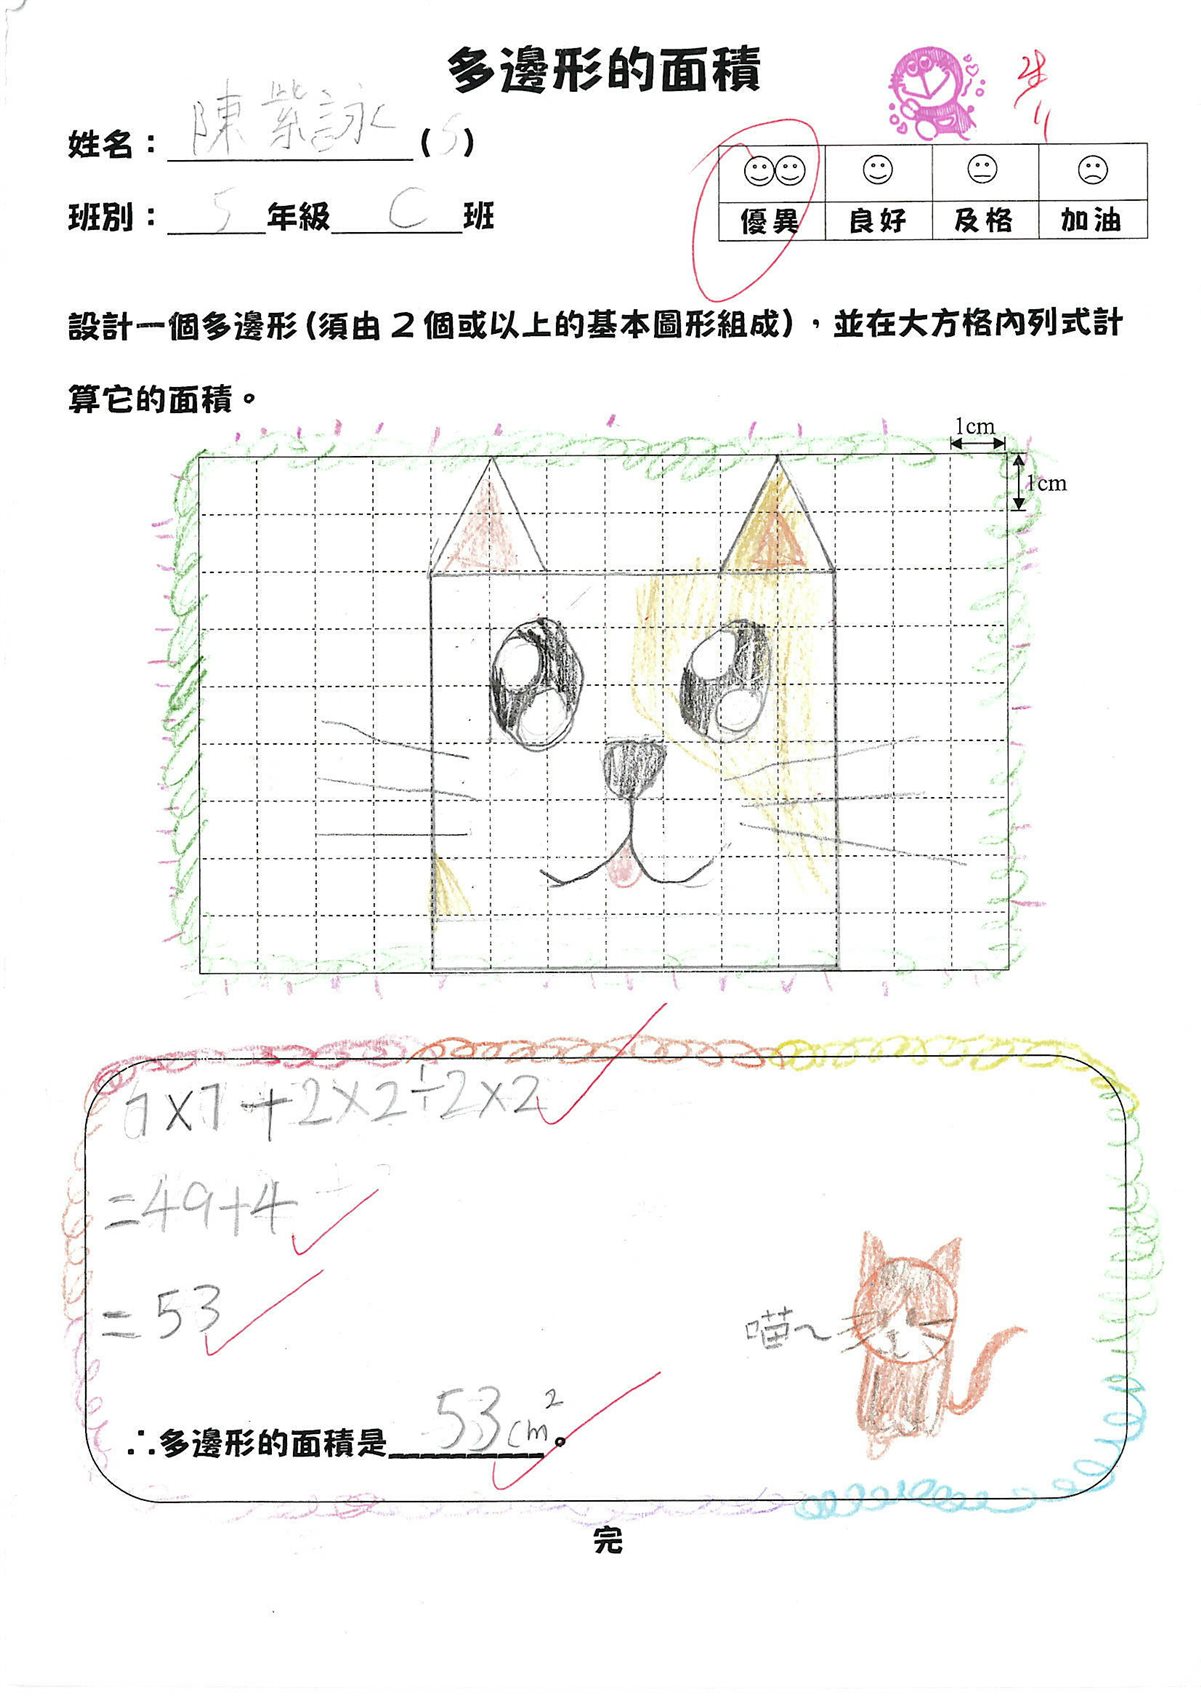 多邊形的面積
姓名：陳紫詠(5)
班別：5年級C班
優異 良好 及格 加油
設計一個多邊形(須由2個或以上的基本圖形組成)，並在大方格內列式計
算它的面積。
1cm
1cm
7×7+2×2÷2×2
=49+4
=53
喵~
∴多邊形的面積是53cm²。
完